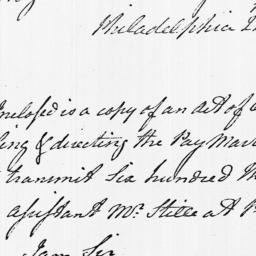 Philadelphia
Inclosed is a copy of an act of
ling & directing the Pay Mas
transmit Six hundred
assistant Mr. Stille at
I am Sir